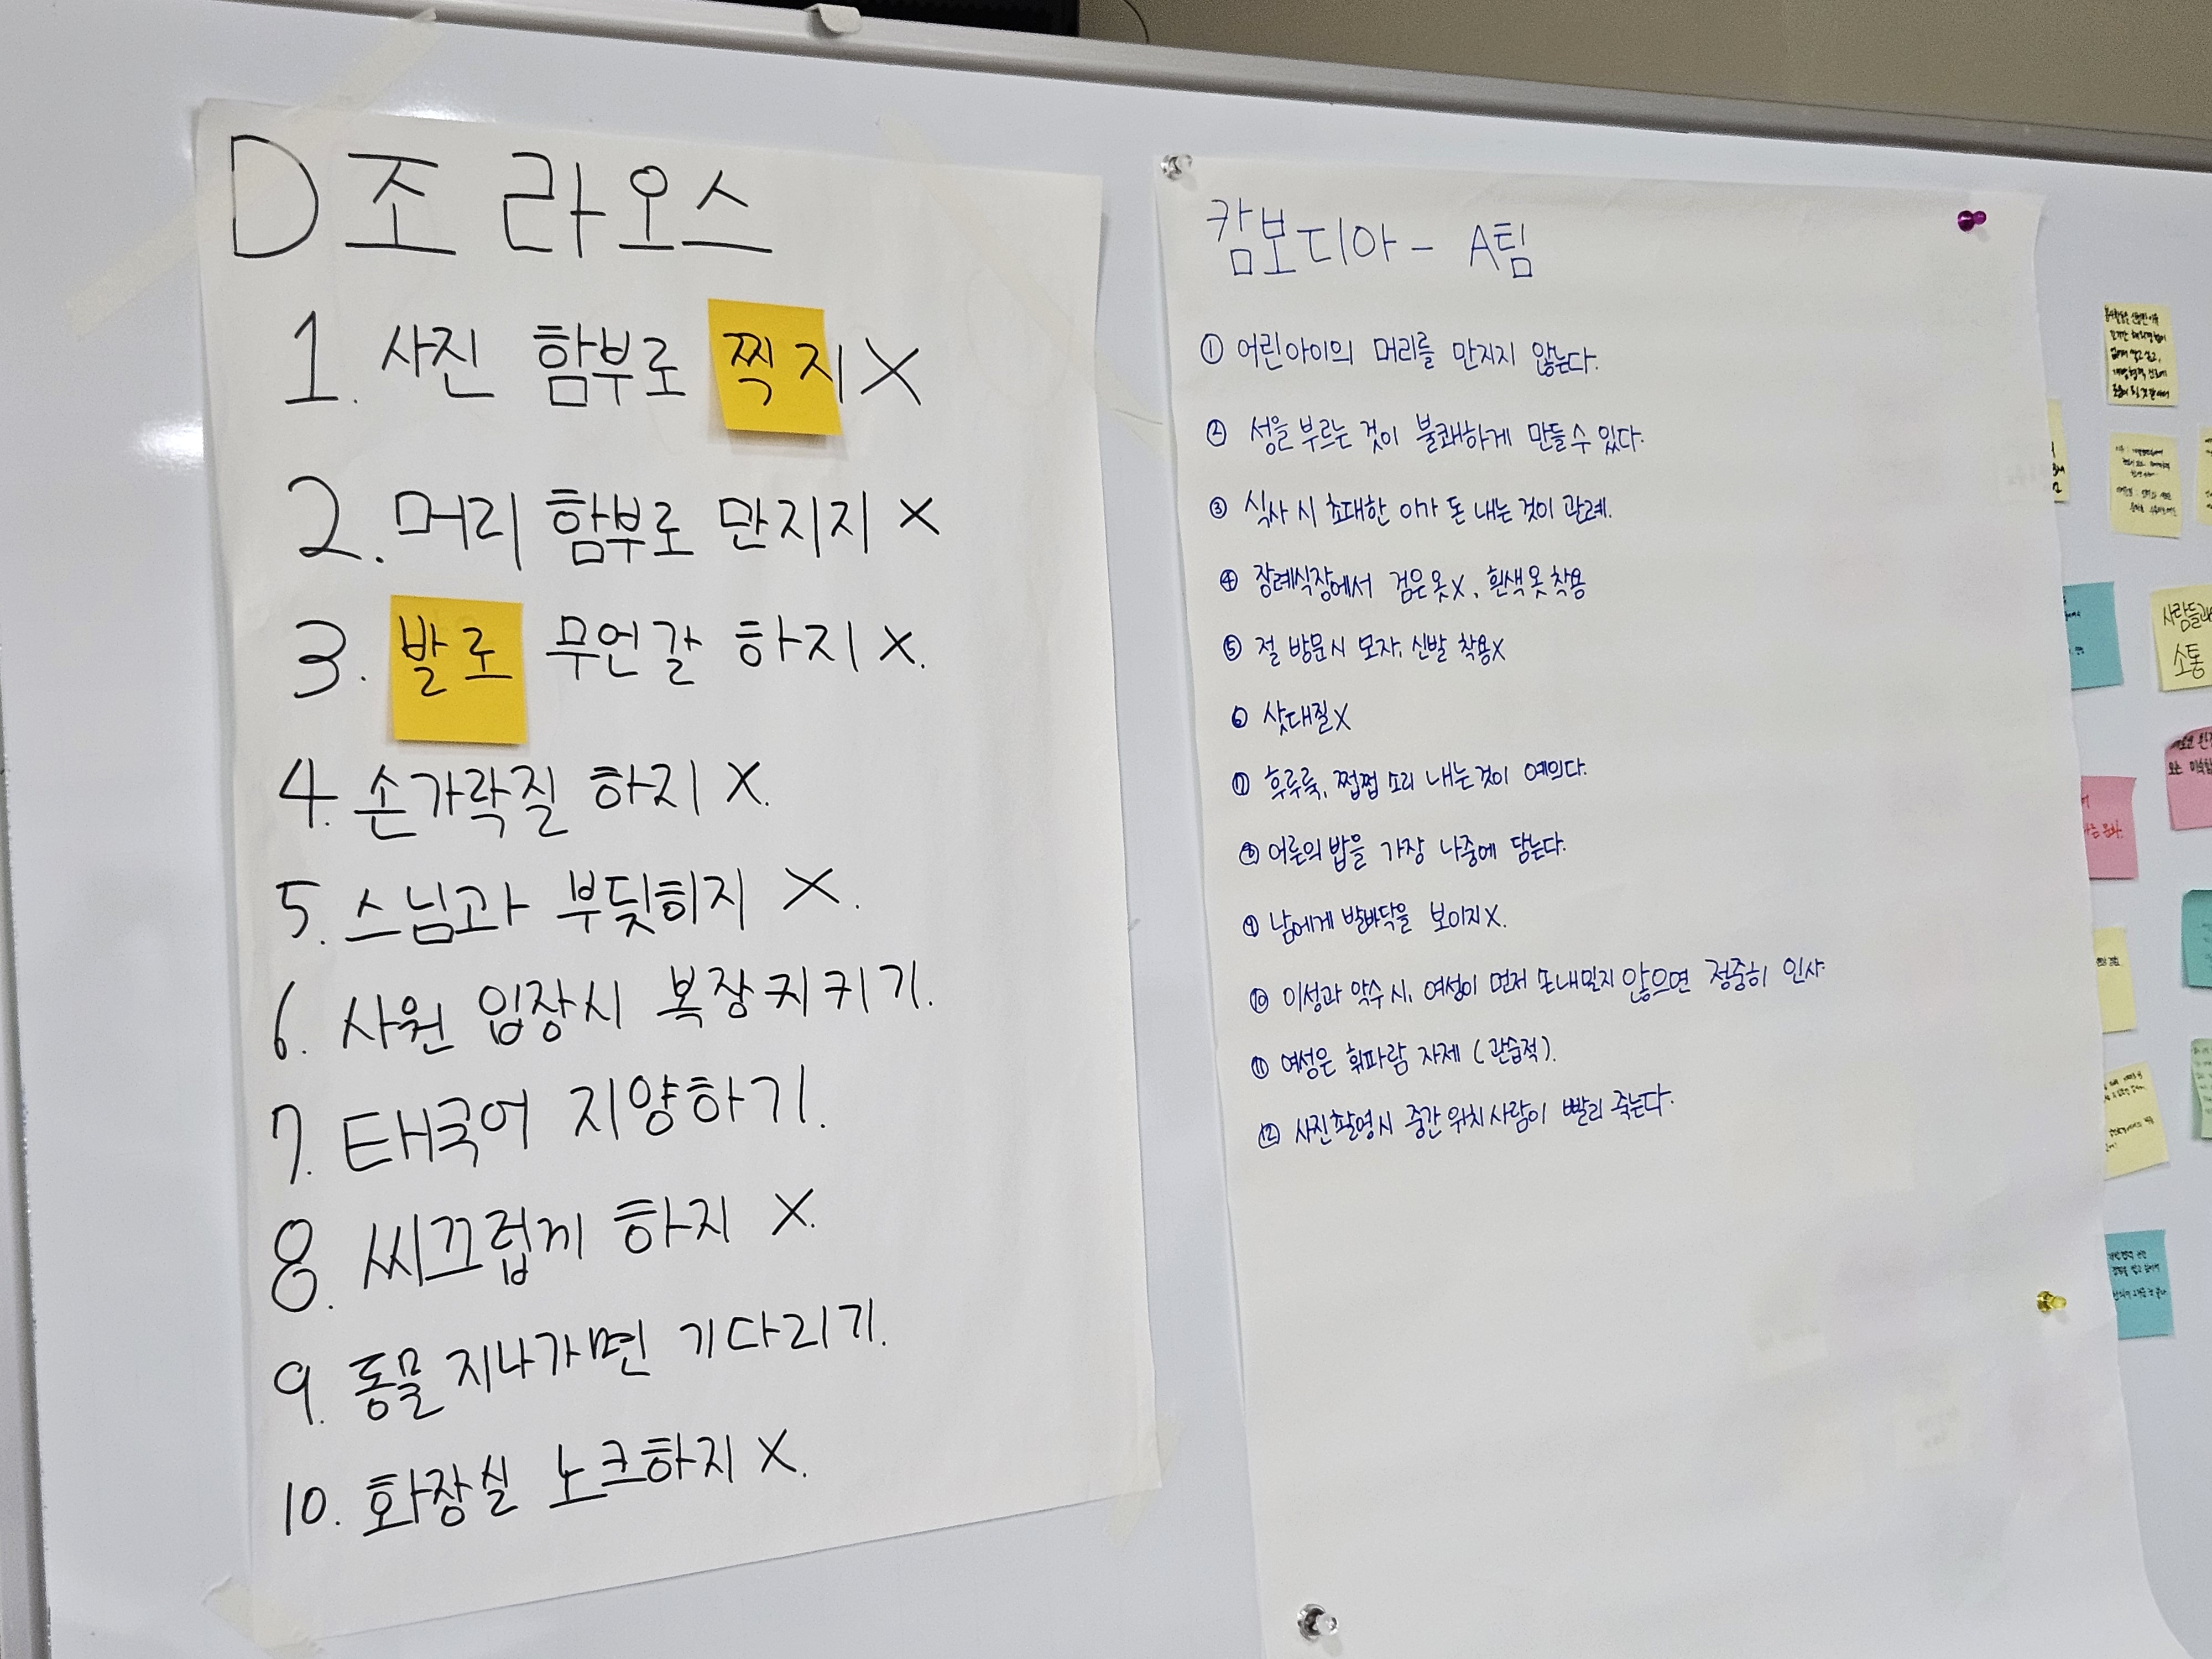 D조 라오스
1. 사진 함부로 찍지 X
2. 머리 함부로 만지지 X
3. 발로 무언갈 하지 X.
4. 손가락질 하지 X.
5. 스님과 부딪히지 X.
6. 사원 입장시 복장 지키기.
7. 태국어 지양하기.
8. 씨끄럽게 하지 X.
9. 동물 지나가면 기다리기.
10. 화장실 노크하지 X.
캄보디아 - A팀
① 어린아이의 머리를 만지지 않는다.
② 성을 부르는 것이 불쾌하게 만들 수 있다.
③ 식사 시 초대한 이가 돈 내는 것이 관례.
④ 장례식장에서 검은 옷X, 흰색 옷 착용
⑤ 절 방문시 모자, 신발 착용X
⑥ 삿대질X
⑦ 후루룩, 쩝쩝 소리 내는 것이 예의다.
⑧ 어른의 밥을 가장 나중에 담는다.
⑨ 남에게 발바닥을 보이지X.
⑩ 이성과 악수 시, 여성이 먼저 손내밀지 않으면 정중히 인사
⑪ 여성은 휘파람 자제 (관습적).
⑫ 사진 촬영시 중간 위치 사람이 빨리 죽는다.
사람들과
소통